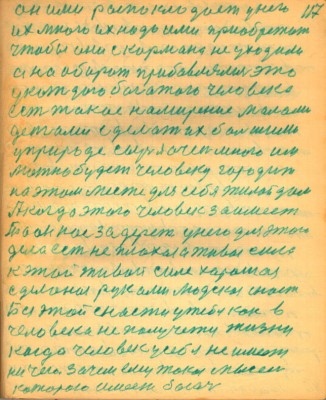 он ими распоклодает унего 117
их много их надо ими приобретат
чтобы они скормана не уходили
а на оборот прибавлялис это
укождого богатого человека
ест такое намирение малами
детами сделат их болшими
уприроде сыря очен много им
можно будет человеку городит
на этом месте для себя жилой дом
А когда этого человек заимеет
то он нас задержет унего для этого
дела ест не плохая живая сила
к этой живой силе харошая
сделаная руками людская снаст
Без этой снасти утебя как в
человека не получету жизни
когда человек усебя не имеет
ничего зачем ему такой смысел
которого имеет богач